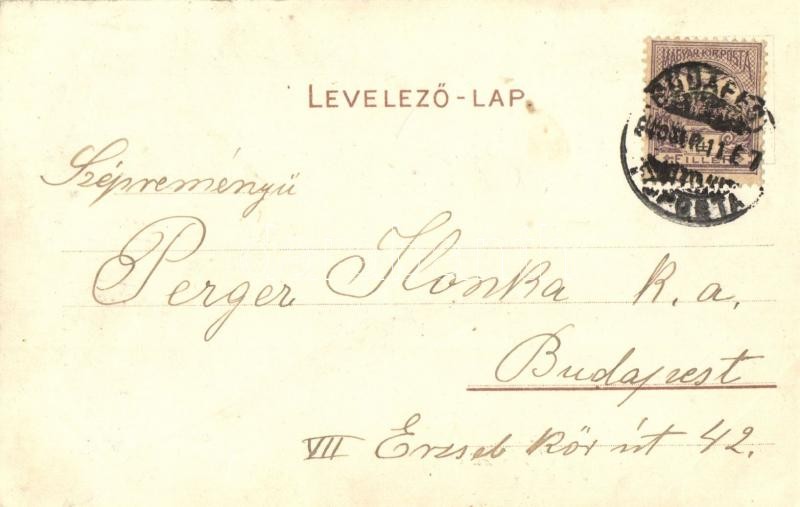 LEVELEZŐ-LAP
MAGYAR KIR. POSTA
FILLÉR
Szépreményü
Perger Ilonka k.a.
Budapest
VII Erzseb kör út 42.